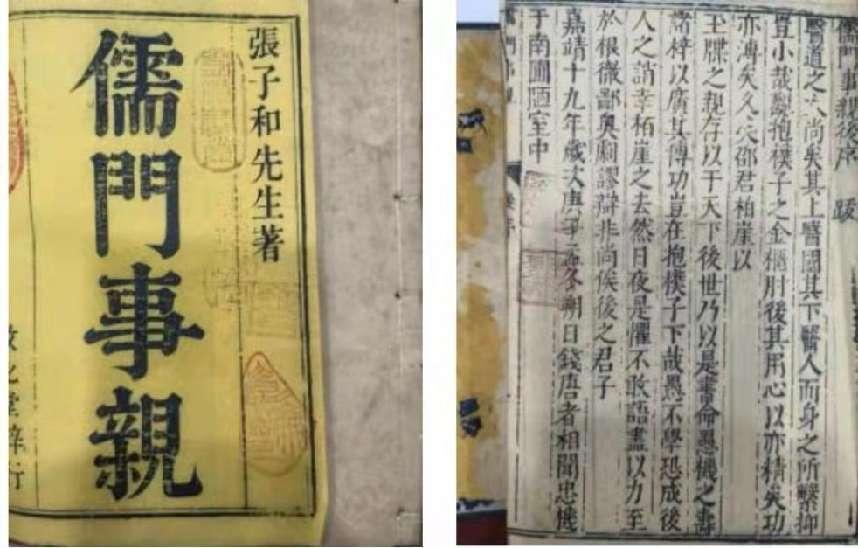 張子和先生著
儒門事親
儒門事親後序 跋
醫道之大尚矣其上醫國其下醫人而身之所繫抑
豈小哉製抱樸子之金櫃肘後其用心以亦精矣功
亦溥矣久矣邵君柏崖以
王牒之親存以干天下後世乃以是書命愚機之壽
諸梓以廣其傳功豈在抱樸子下哉愚不學恐成後
人之誚幸柏崖之去然日夜是懼不敢語盡以力至
於根微鄙奧剔謬辯非尚俟後之君子
嘉靖十九年歲次庚子孟冬朔日錢唐者相聞忠機
于南圃陋室中